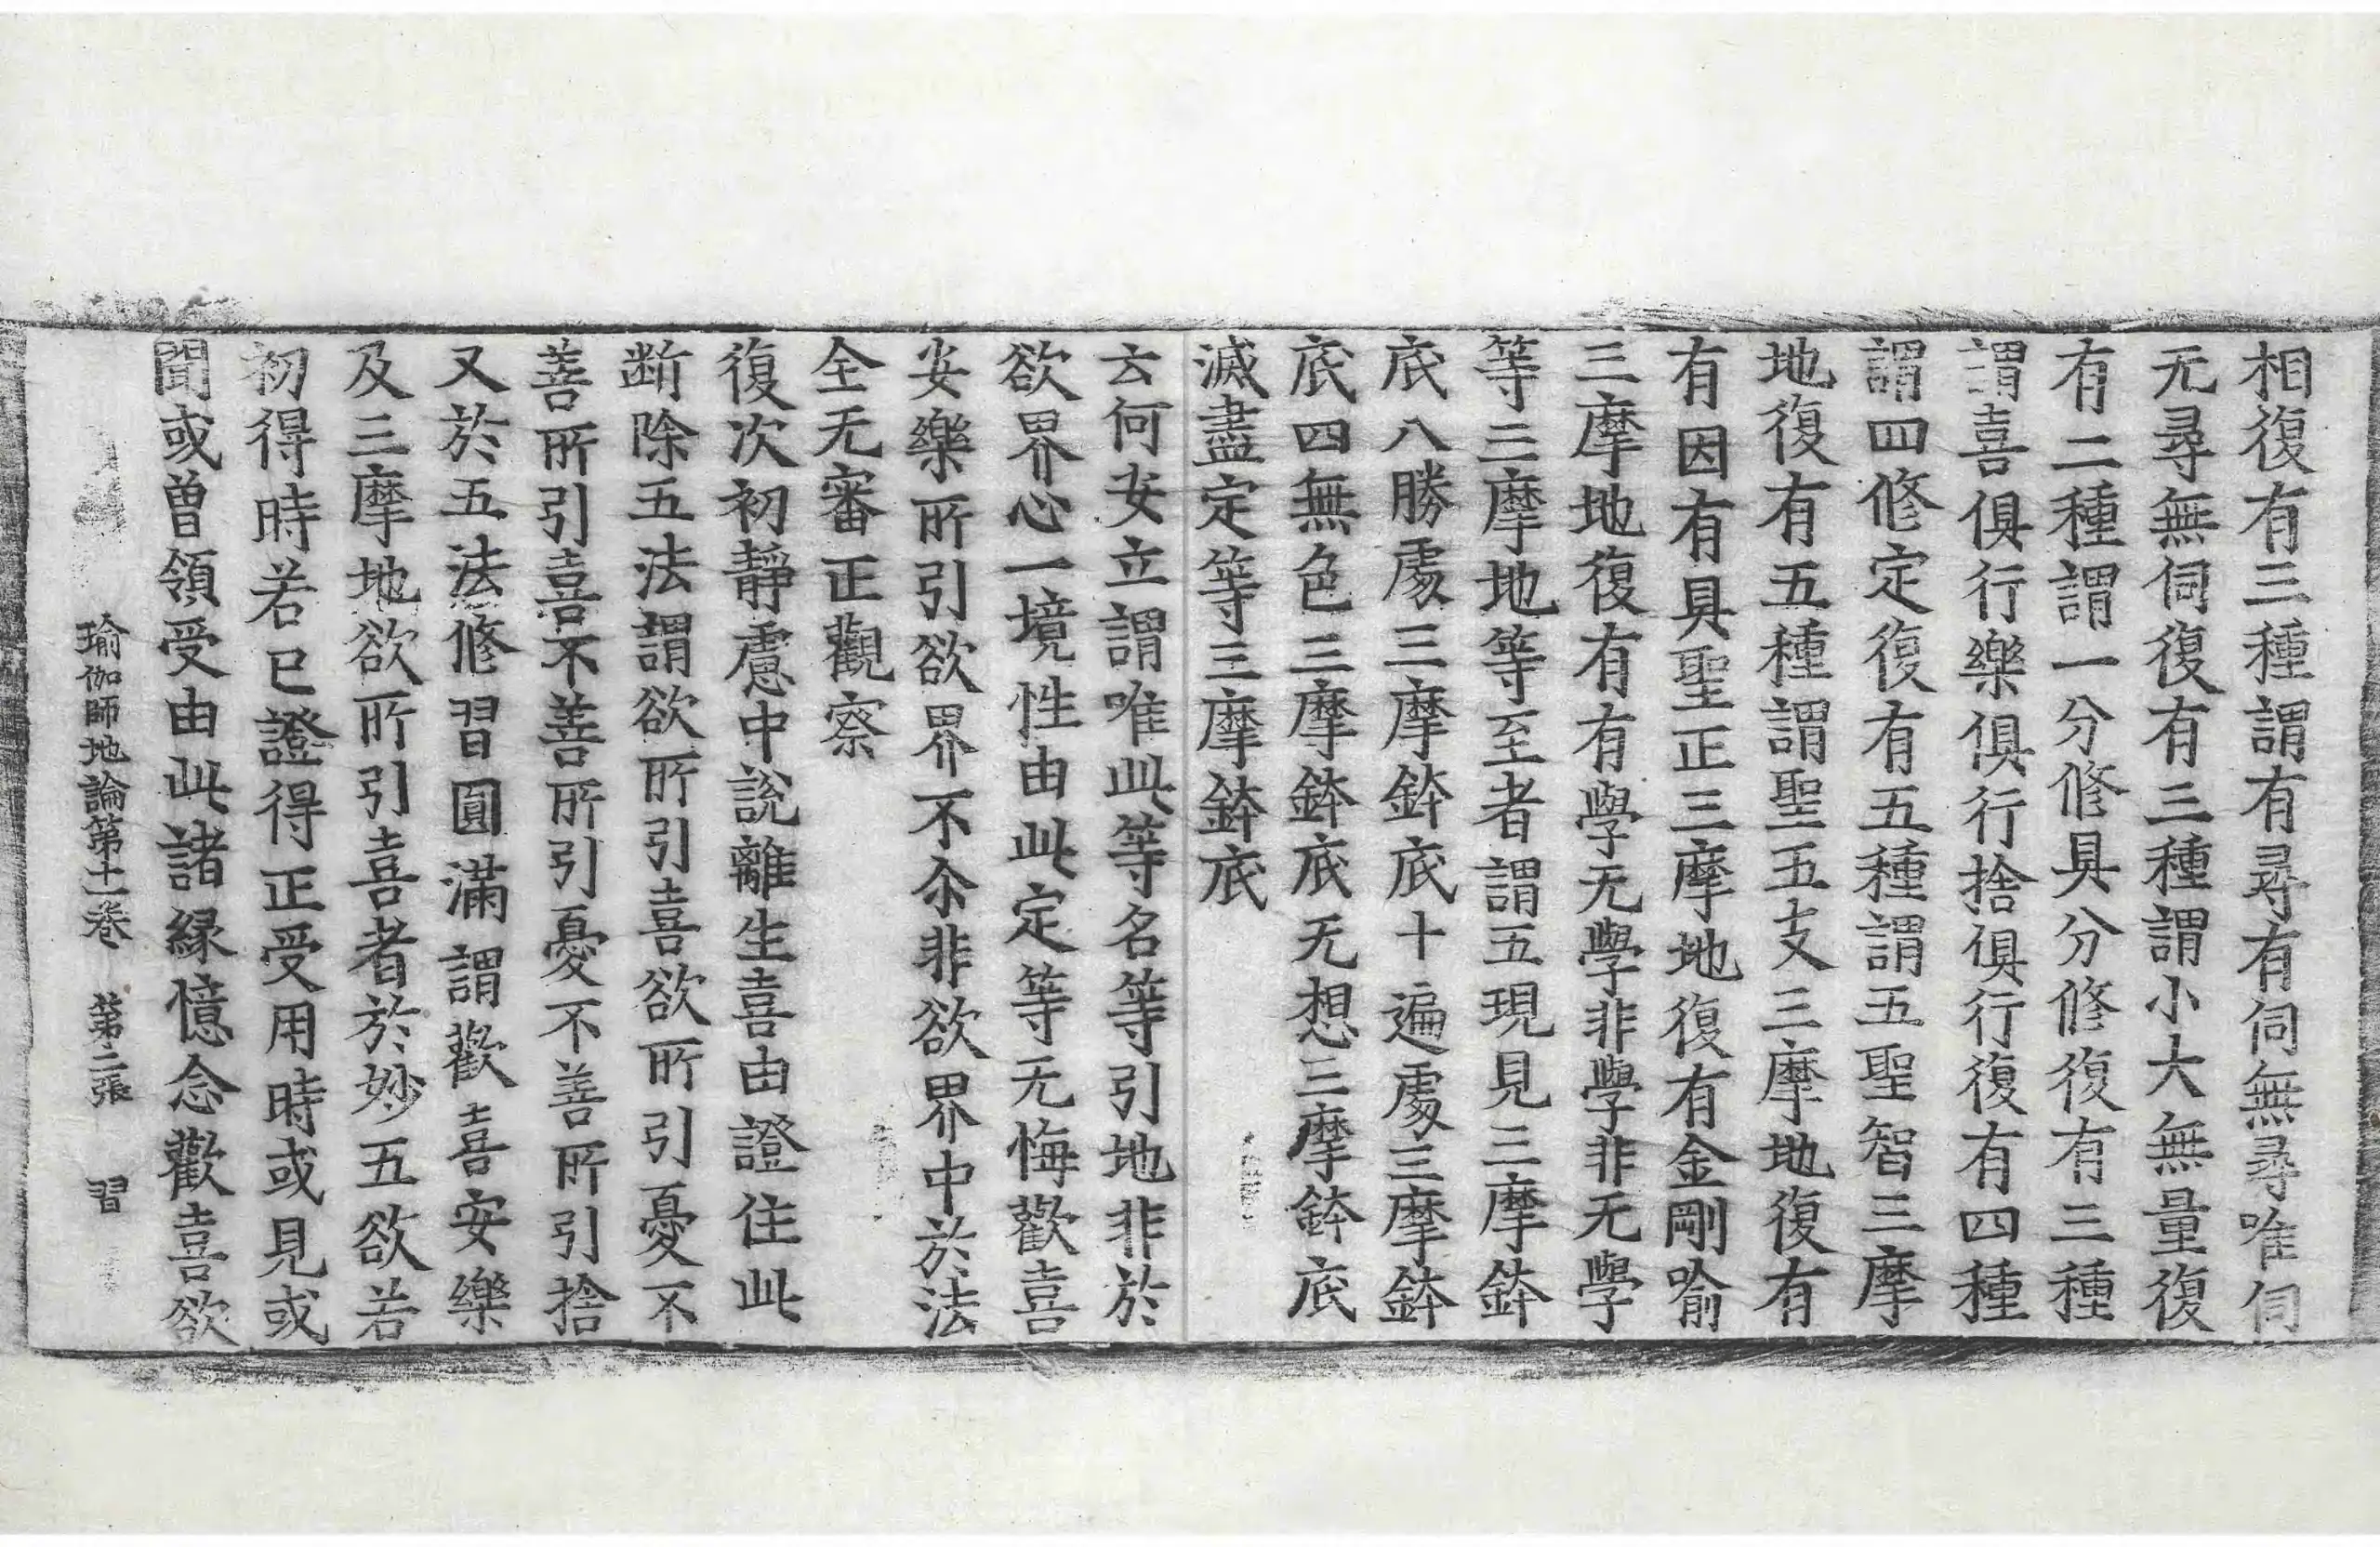 相復有三種謂有尋有伺無尋唯伺
无尋無伺復有三種謂小大無量復
有二種謂一分修具分修復有三種
謂喜俱行樂俱行捨俱行復有四種
謂四修定復有五種謂五聖智三摩
地復有五種謂聖五支三摩地復有
有因有具聖正三摩地復有金剛喻
三摩地復有有學无學非學非无學
等三摩地等至者謂五現見三摩鉢
底八勝處三摩鉢底十遍處三摩鉢
底四無色三摩鉢底无想三摩鉢底
滅盡定等三摩鉢底
云何安立謂唯此等名等引地非於
欲界心一境性由此定等无悔歡喜
安樂所引欲界不尒非欲界中於法
全无審正觀察
復次初靜慮中說離生喜由證住此
断除五法謂欲所引喜欲所引憂不
善所引喜不善所引憂不善所引捨
又於五法修習圓滿謂歡喜安樂
及三摩地欲所引喜者於妙五欲若
初得時若已證得正受用時或見或
聞或曾領受由此諸縁憶念歡喜欲
瑜伽師地論第十一卷 第二張 習